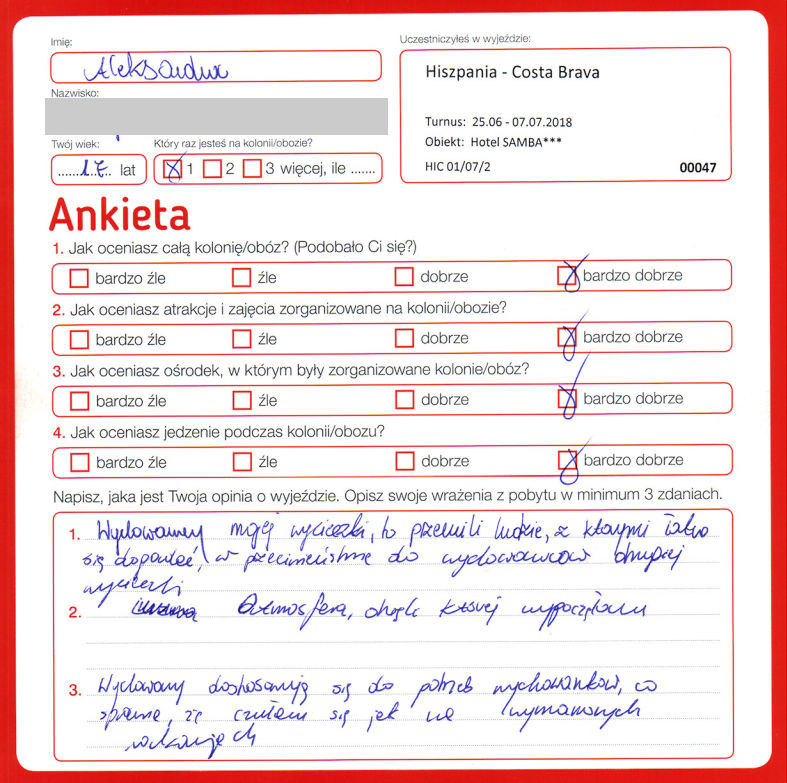 Imię:
Aleksandra
Nazwisko:
Uczestniczyłeś w wyjeździe:
Hiszpania - Costa Brava
Turnus: 25.06 - 07.07.2018
Obiekt: Hotel SAMBA***
HIC 01/07/2
00047
Twój wiek:
17 lat
Który raz jesteś na kolonii/obozie?
1 2 3 więcej, ile .......
Ankieta
1. Jak oceniasz całą kolonię/obóz? (Podobało Ci się?)
bardzo źle źle dobrze bardzo dobrze
2. Jak oceniasz atrakcje i zajęcia zorganizowane na kolonii/obozie?
bardzo źle źle dobrze bardzo dobrze
3. Jak oceniasz ośrodek, w którym były zorganizowane kolonie/obóz?
bardzo źle źle dobrze bardzo dobrze
4. Jak oceniasz jedzenie podczas kolonii/obozu?
bardzo źle źle dobrze bardzo dobrze
Napisz, jaka jest Twoja opinia o wyjeździe. Opisz swoje wrażenia z pobytu w minimum 3 zdaniach.
1. Wychowawcy mojej wycieczki, to przemili ludzie, z którymi łatwo
się dogadać, w przeciwieństwie do wychowawców drugiej
wycieczki
2. Atmosfera, dzięki której wypoczęłam
3. Wychowawcy dostosowują się do potrzeb wychowanków, co
sprawia, że czułam się jak na wymarzonych
wakacjach